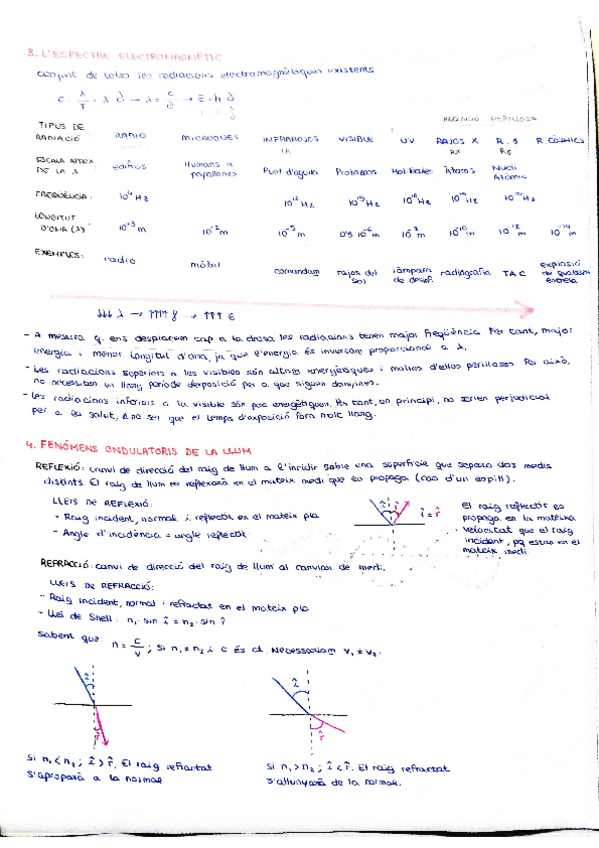 3. L'ESPECTRE ELECTROMAGNÈTIC
conjunt de totes les radiacions electromagnètiques existents
RADIACIÓ PERILLOSA
TIPUS DE RADIACIÓ RÀDIO MICROONES INFRAROJOS IR VISIBLE UV RAJOS X RX R. γ R. CÒSMICS
ESCALA APROX DE LA λ edificis Humans a papallones Punt d'agulla Protozous Molècules Àtoms Nucli Atòmic
FREQÜÈNCIA: 10⁴ Hz 10¹² Hz 10¹⁵ Hz 10¹⁶ Hz
LONGITUT D'ONA (λ) 10⁻² m 10⁻⁵ m 0'5 10⁻⁶ m 10⁻⁸ m 10⁻¹⁰ m 10⁻¹² m 10⁻¹⁴ m
EXEMPLES: radio mòbil comandam rajos del sol làmpara de desinf. radiografia TAC explosió de qualsevol estrela
↓↓↓ λ → ↑↑↑ f → ↑↑↑ E
- A mesura q. ens desplacem cap a la dreta les radiacions tenen major freqüència. Per tant, major
energia i menor longitud d'ona, ja que l'energia és inversam proporcional a λ.
- Les radiacions superiors a les visibles són altam energètiques i moltes d'elles perilloses. Per això,
no necessiten un llarg període d'exposició per a que siguen danyines.
- Les radiacions inferiors a la visible són poc energètiques. Per tant, en principi, no serien perjudicials
per a la salut, a no ser que el temps d'exposició fora molt llarg.
4. FENÓMENS ONDULATORIS DE LA LLUM
REFLEXIÓ: canvi de direcció del raig de llum a l'incidir sobre una superfície que separa dos medis
distints. El raig de llum es reflexarà en el mateix medi que es propaga (cas d'un espill).
LLEIS DE REFLEXIÓ:
- Raig incident, normal i reflectit en el mateix pla
- Angle d'incidència = angle reflectit
î = r̂
El raig reflectit es
propaga en la mateixa
velocitat que el raig
incident, pq estan en el
mateix medi
REFRACCIÓ: canvi de direcció del raig de llum al canviar de medi.
LLEIS DE REFRACCIÓ:
- Raig incident, normal i refractat en el mateix pla
- Llei de Snell: n₁ · sin î = n₂ · sin r̂
sabent que: n = c/v ; si n₁ ≠ n₂ i c és ct. Necessariam v₁ ≠ v₂.
î r̂
î r̂
si n₁ < n₂ ; î > r̂. El raig refractat
s'aproparà a la normal
si n₁ > n₂ ; î < r̂. El raig refractat
s'allunyarà de la normal.